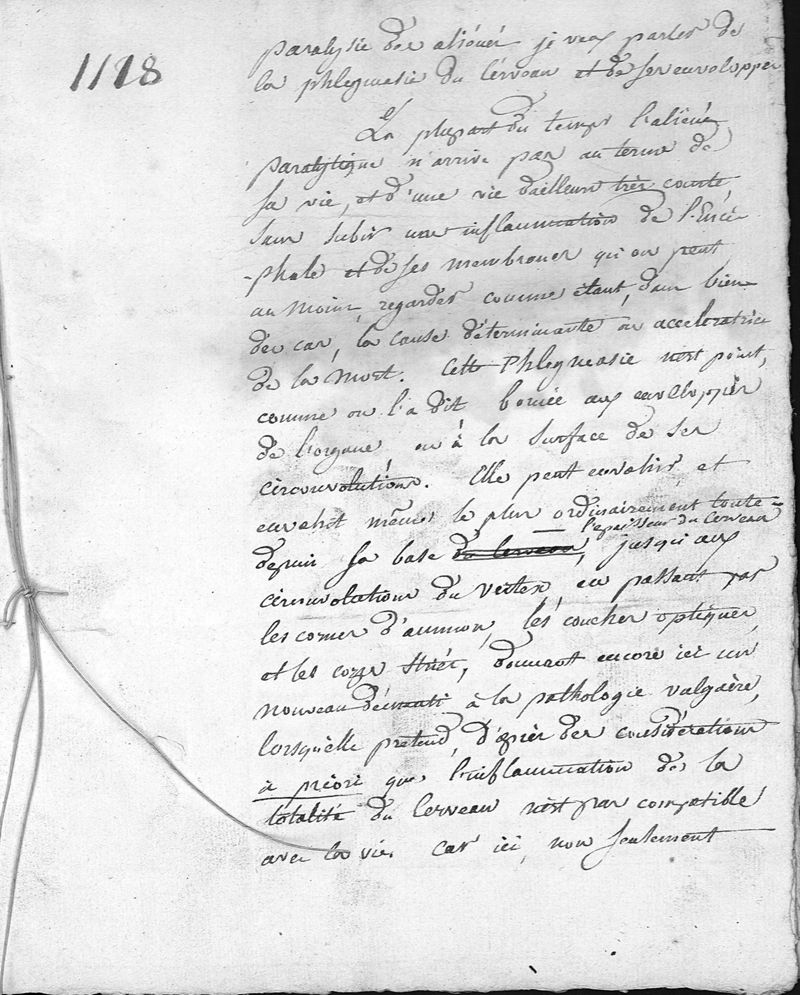 1118
paralysie des aliénés je veux parler de
la phlegmasie du cerveau et de ses enveloppes
La plupart du temps l'aliéné
paralytique n'arrive pas au terme de
sa vie, et d'une vie d'ailleurs très courte,
sans subir une inflammation de l'Encé-
-phale et de ses membranes qu'on peut
au moins, regarder comme étant, dans bien
des cas, la cause déterminante ou acceleratrice
de la mort. Cette Phlegmasie n'est point,
comme on l'a dit bornée aux enveloppes
de l'organe, ou à la surface de ses
circonvolutions. Elle peut envahir, et
envahit même, le plus ordinairement toute
l'epaisseur du Cerveau
depuis sa base du cerveau, jusqu'aux
circonvolutions du vertex, en passant par
les cornes d'ammon, les couches optiques,
et les corps striés, donnant encore ici un
nouveau démenti à la pathologie vulgaire,
lorsqu'elle prétend, d'après des considérations
à priori que l'inflammation de la
totalité du cerveau n'est pas compatible
avec la vie. Car ici, non seulement